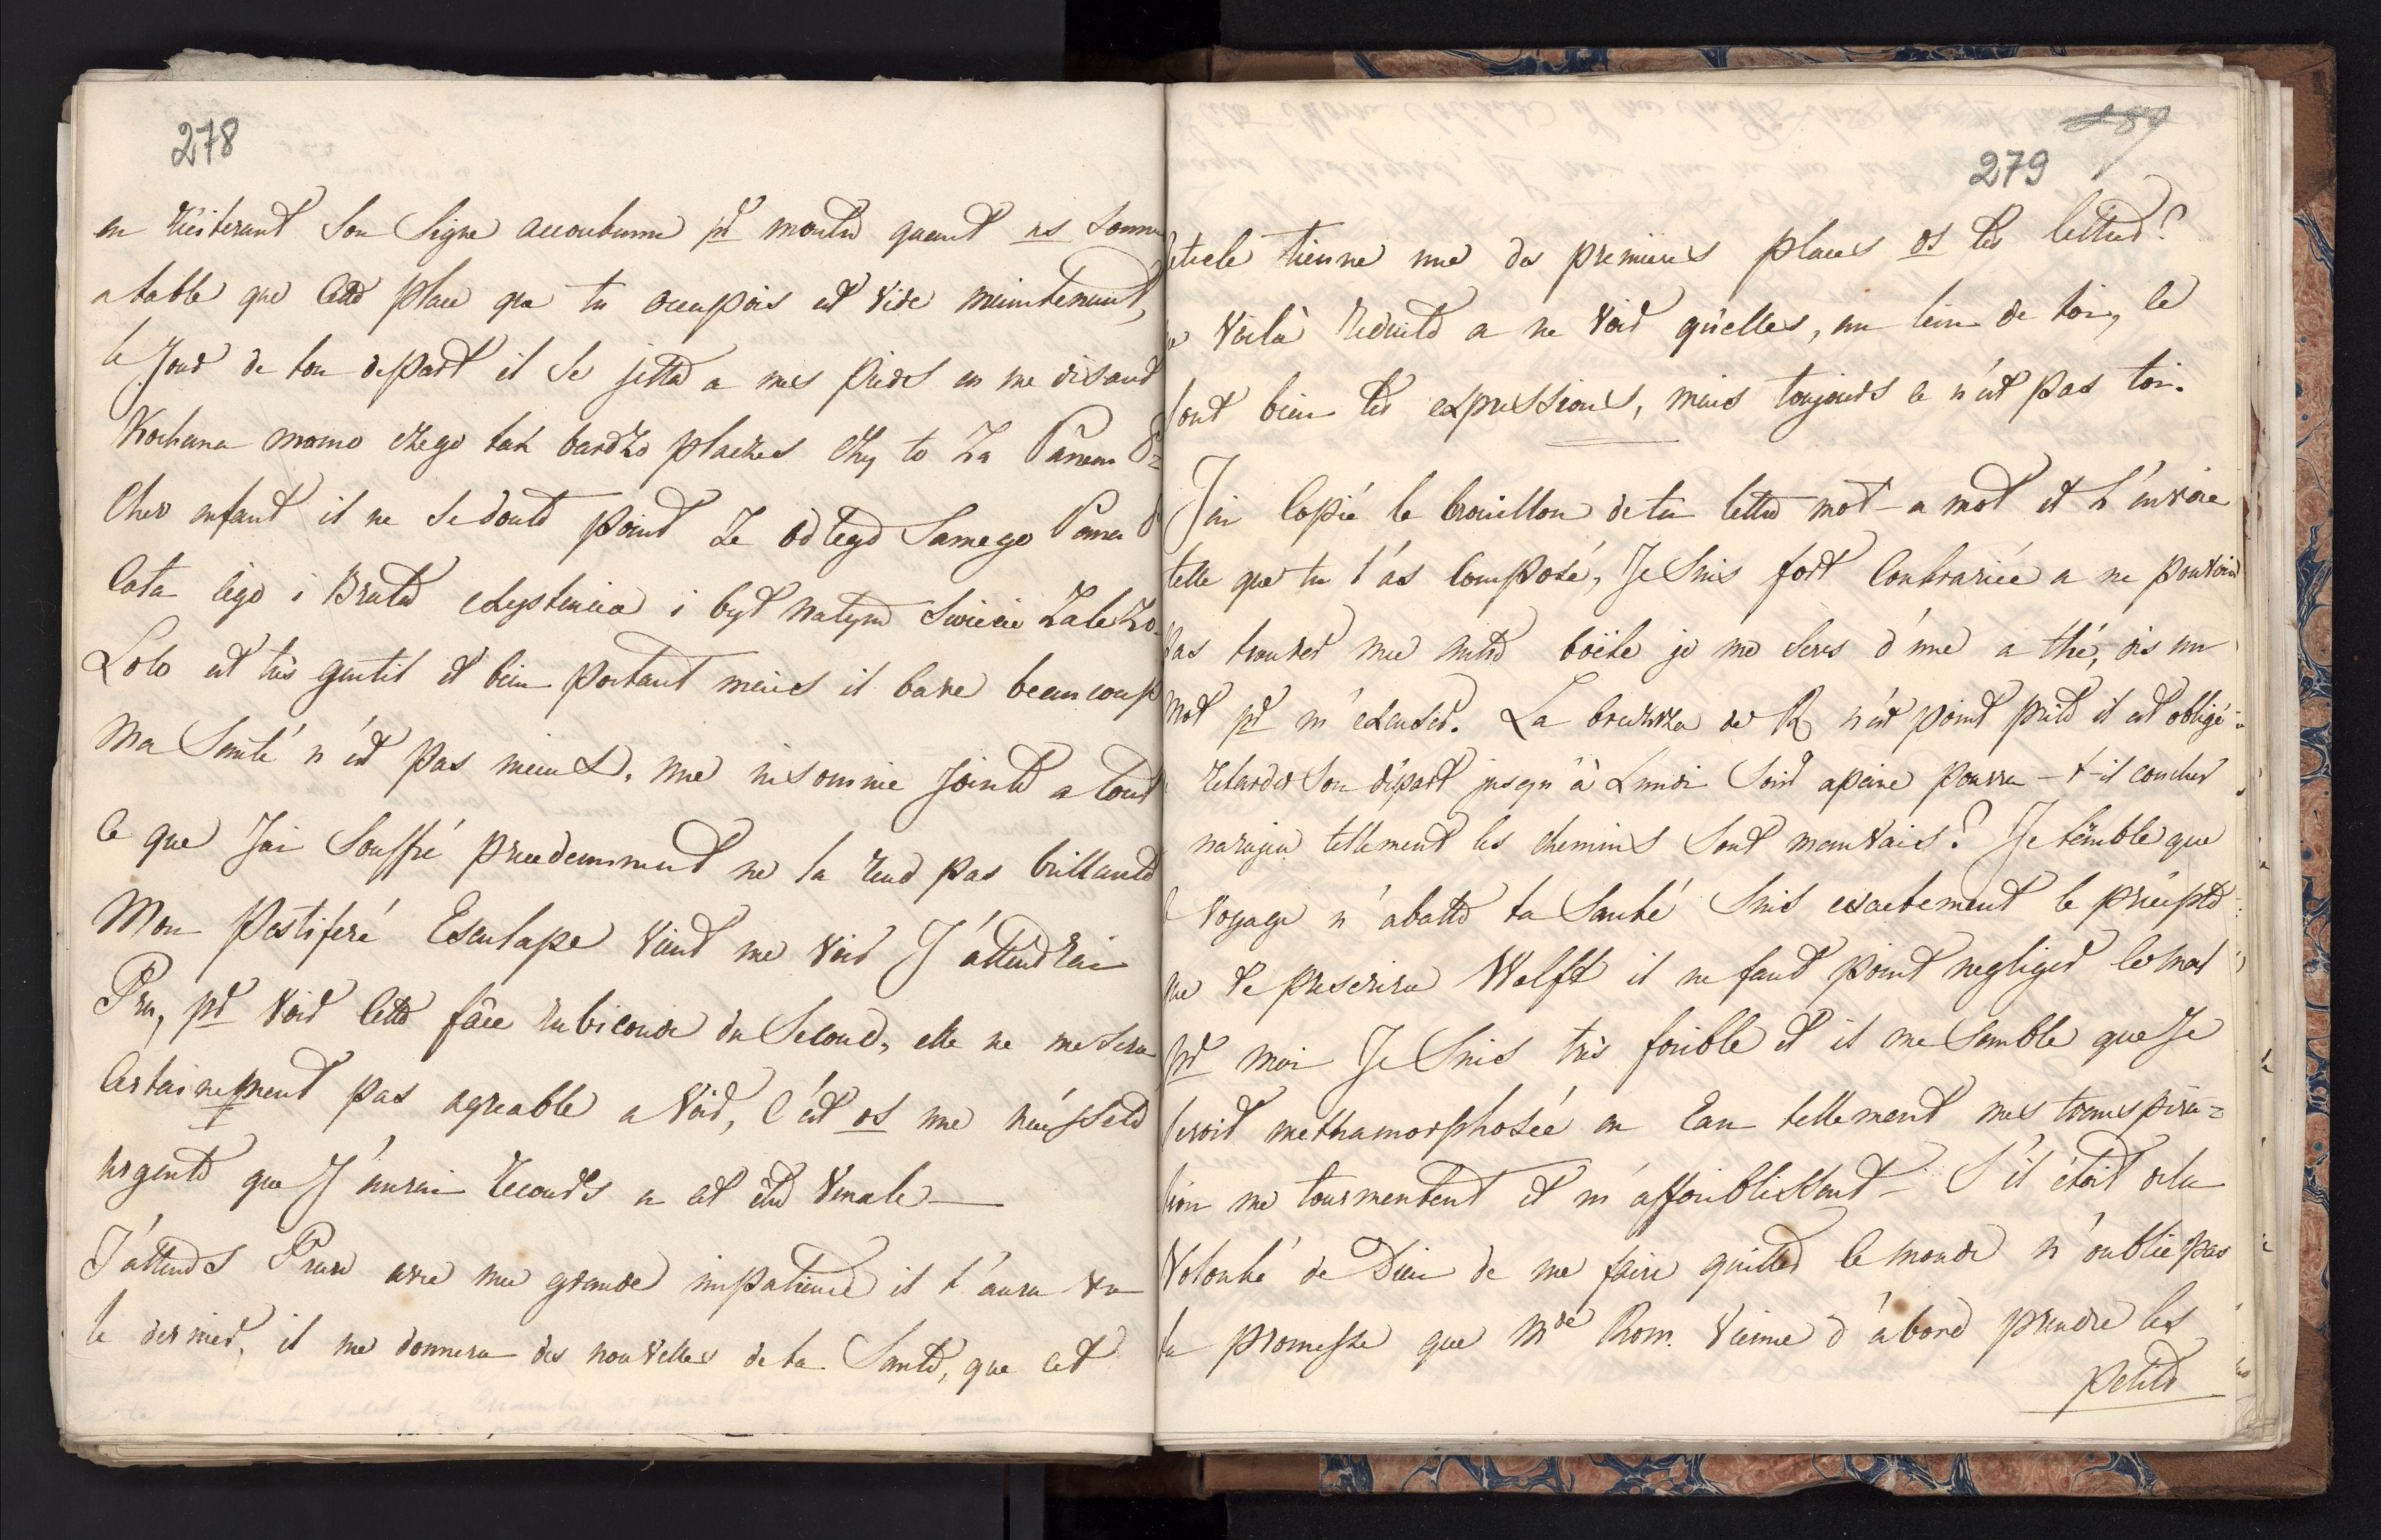 278
en réiterant Son Signe accoutumé pr montre quant ns Somme
a table que cette place que tu occupois est Vide maintenant,
le Jour de ton depart il Se jetta a mes Pieds en me disant
Kochana mamo czego tak bardzo placzes czy to Za Panem
Cher enfant il ne Se doute point Ze od tego Samego Pana
Cała łego i Brata existencia i byt na tym Swiecie Zalezo
Lolo est très gentil et bien Portant mais il bave beaucoup
Ma Santé n'est pas mieux, une insomnie Jointe a tout
ce que J'ai Souffré precedemment ne la rend pas brillante
Mon Pestiferé Esculape Vient me Voir J'attendrai
Pru, pr Voir Cette fâce rubiconde du Second, elle ne me Sera
Certainement pas agreable a Voir, C'est ds une néçessité
urgente que J'aurai recours a cet être Venale —
J'attends Pruse avec une grande impatience il t'aura vu
le dernier, il me donnera des nouvelles de ta Santé, que cet
279
article tienne une des premieres places ds tes lettres?
Voilà reduite a ne Voir qu'elles, au lieu de toi, ce
Sont bien tes expressions, mais toujours ce n'est pas toi.
J'ai Copié le brouillon de ta lettre mot-a mot et t'envoie
telle que tu l'as Composé, Je Suis fort Contrariée a ne pouvoir
pas trouver une autre boëte je me Sers d'une a thé, dis un
Mot pr m'excuser. La de R n'est point prête il est obligé
retarder Son départ jusqu'à Lundi Soir apeine pourra-t-il coucher
tellement les chemins Sont mauvais? Je tremble que
le Voyage n'abatte ta Santé Suis exactement le précepte
que te prescrira Wolff il ne faut point negliger le mal
pr moi Je Suis très foible et il me Semble que Je
Serois methamorphosée en Eau tellement mes transpira=
tion me tourmentent et m'affoiblissent — S'il étoit de la
Volonté de Dieu de me faire quitter le monde n'oublie pas
ta promesse que Mde Rom. Vienne d'abord prendre les
petits